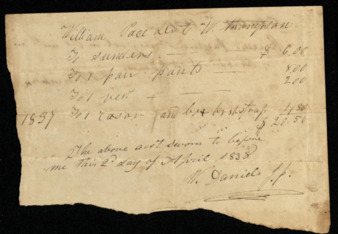 William Pace Debt W. Thompson
To sundries $ 6.00
To 1 pair pants 8.00
To 1 2.00
1837 To 1 razor and box & strap 4.50
$ 20.50
The above acct sworn to before
me this 2d day of April 1838
W. Daniels J.P.